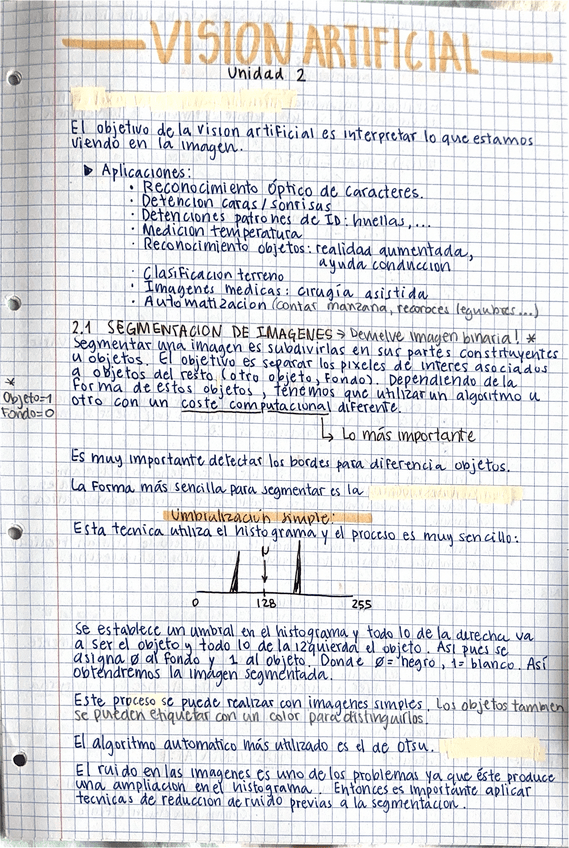 VISION ARTIFICIAL
Unidad 2
El objetivo de la vision artificial es interpretar lo que estamos
viendo en la imagen.
▶ Aplicaciones:
· Reconocimiento óptico de caracteres.
· Detencion caras/sonrisas
· Detenciones patrones de ID: huellas,...
· Medicion temperatura
· Reconocimiento objetos: realidad aumentada,
ayuda conduccion
· Clasificacion terreno
· Imagenes medicas: cirugía asistida
· Automatizacion (contar manzana, recoroces legunbres...)
2.1 SEGMENTACION DE IMAGENES → Devuelve imagen binaria! *
Segmentar una imagen es subdivirlas en sus partes constituyentes
u objetos. El objetivo es separar los pixeles de interes asociados
a objetos del resto (otro objeto, fondo). Dependiendo de la
forma de estos objetos, tenemos que utilizar un algoritmo u
otro con un coste computacional diferente.
*
Objeto=1
Fondo=0
↳ Lo más importante
Es muy importante detectar los bordes para diferencia objetos.
La forma más sencilla para segmentar es la
Umbralización simple:
Esta tecnica utiliza el histograma y el proceso es muy sencillo:
μ
0 128 255
Se establece un umbral en el histograma y todo lo de la derecha va
a ser el objeto y todo lo de la izquierda el objeto. Asi pues se
asigna ø al fondo y 1 al objeto. Donde ø = negro, 1= blanco. Así
obtendremos la imagen segmentada.
Este proceso se puede realizar con imagenes simples. Los objetos tambien
se pueden etiquetar con un color para distinguirlos.
El algoritmo automatico más utilizado es el de Otsu.
El ruido en las imagenes es uno de los problemas ya que éste produce
una ampliacion en el histograma. Entonces es importante aplicar
tecnicas de reduccion de ruido previas a la segmentacion.